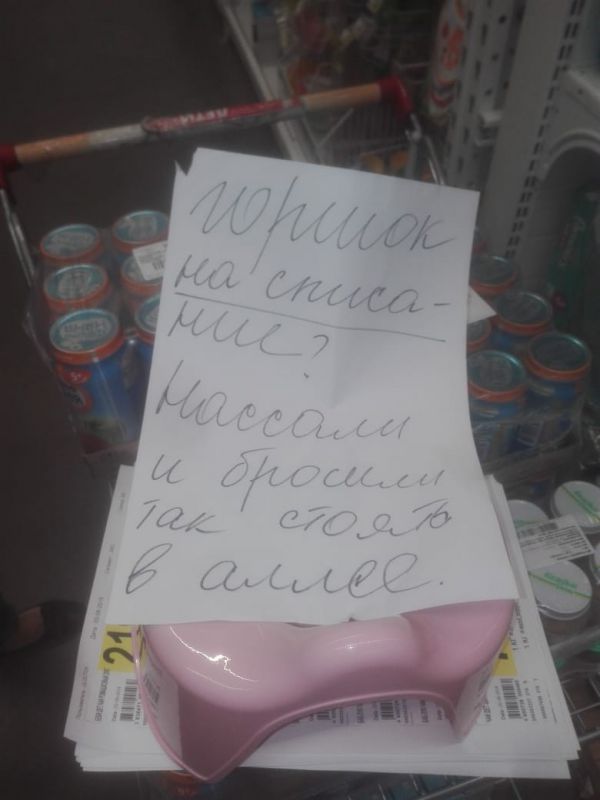 Горшок
на списа-
ние?
Нассали
и бросили
так стоять
в аллее.
21